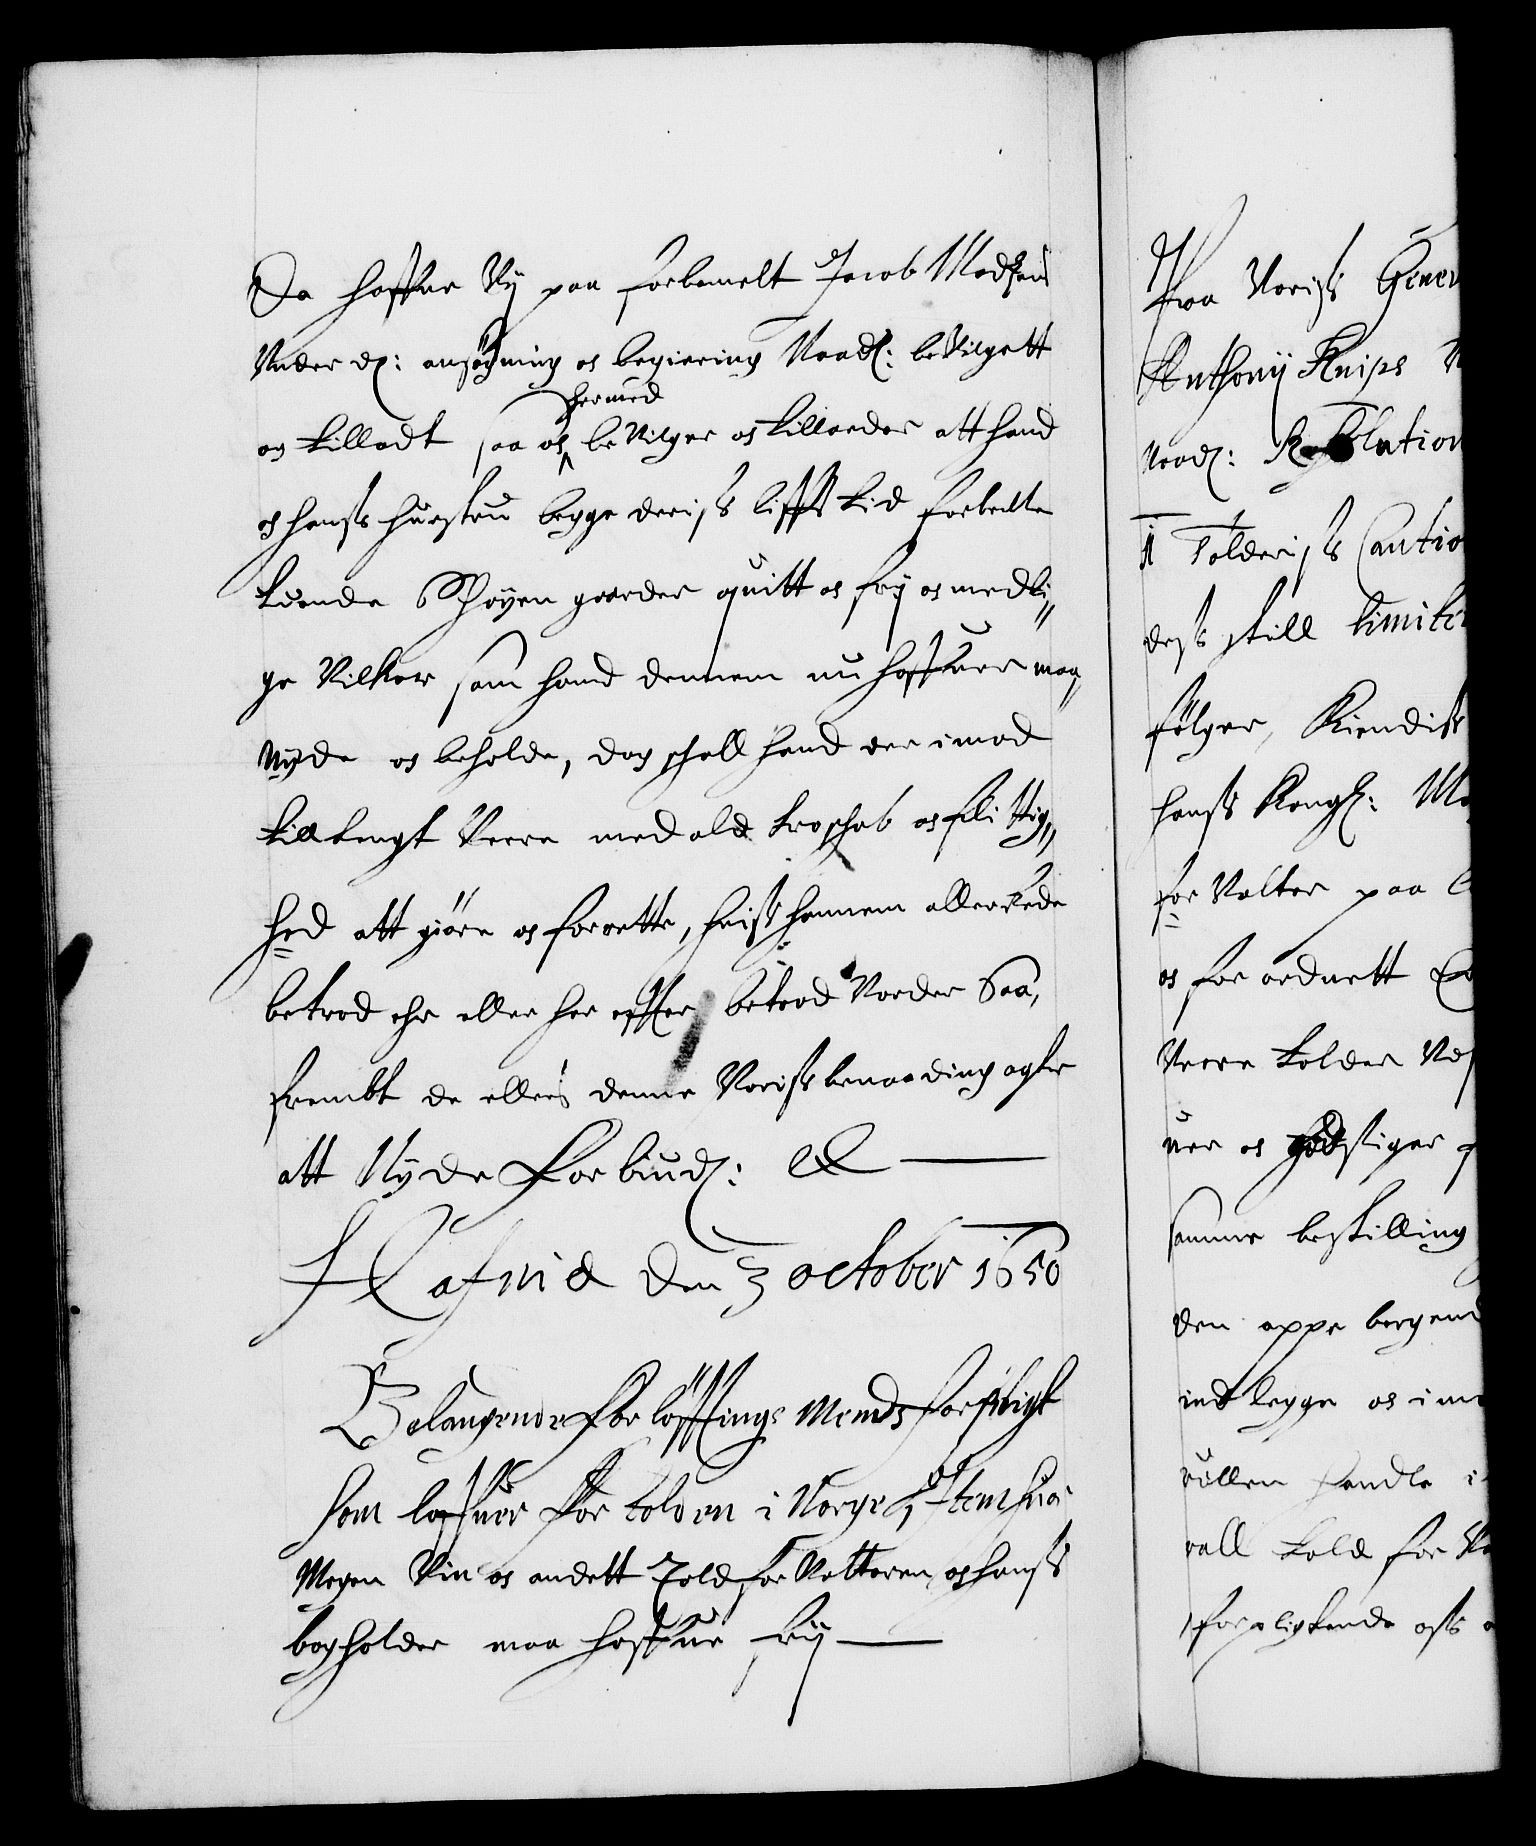 Da haffuer Wij paa forbemelt Jacob Madsens
Under d: ansøgning oc begiering Naad: beuilgett
og tilladt saa oc hermed beuilger oc tillader att hand
oc hanss hustru begge deriss liffs tid forbete
Skøyen gaarder quitt oc frij oc med li„
ge Vilkor som hand dennem nu haffuer maa„
Nyde oc beholde, dog schall hand der imod
tilltengt Verre med ald troschab oc flittig„
hed att giøre oc forrette, huis hannem allerede
betrod ehr eller her effter betrod Vorder Saa„
frembt de ellers denne Voriss benaading agter
att Nyde Forbiud: &
Hafniæ den 3 october 1650
Belangende Forløfftings Mends forsicht
som loffuer for tolden i Norge, Item huor
Megen Vin oc andett Toldforvalteren oc hanss
bogholder maa haffue frij
Fraa Voriss Gener
Anthonij Knips
Naad: Resolution
Tolderiss Cautio
dess till limiter
følger, Kiendiss
hanss Kongl: Ma
for Valter paa
oc forordnett
Verre tolder
uer oc
samme bestilling
den oppe bergend
indlegge oc imo
rullen handle i
vall told for
forpligtende oss